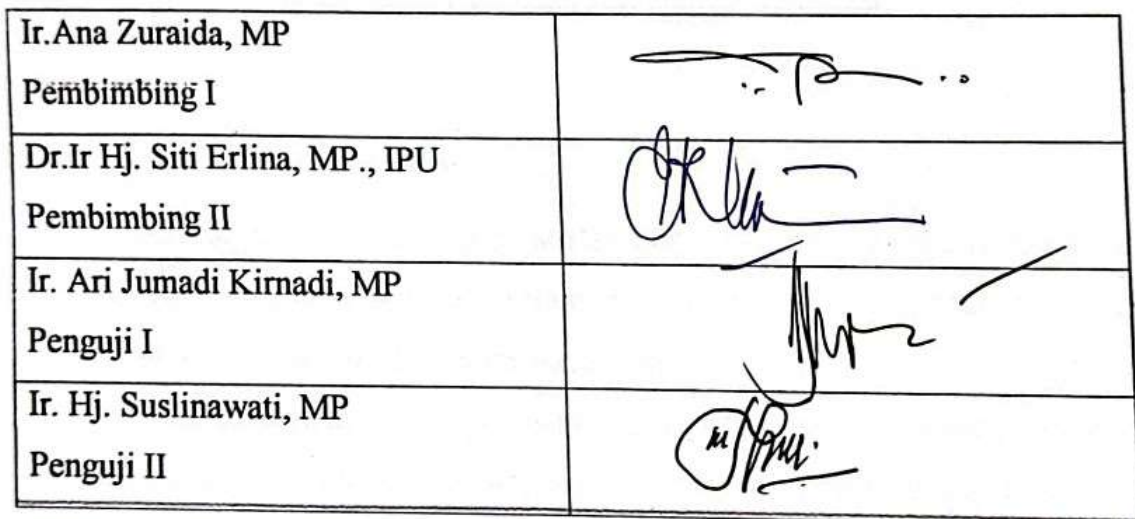 Ir.Ana Zuraida, MP
Pembimbing I
Dr.Ir Hj. Siti Erlina, MP., IPU
Pembimbing II
Ir. Ari Jumadi Kirnadi, MP
Penguji I
Ir. Hj. Suslinawati, MP
Penguji II